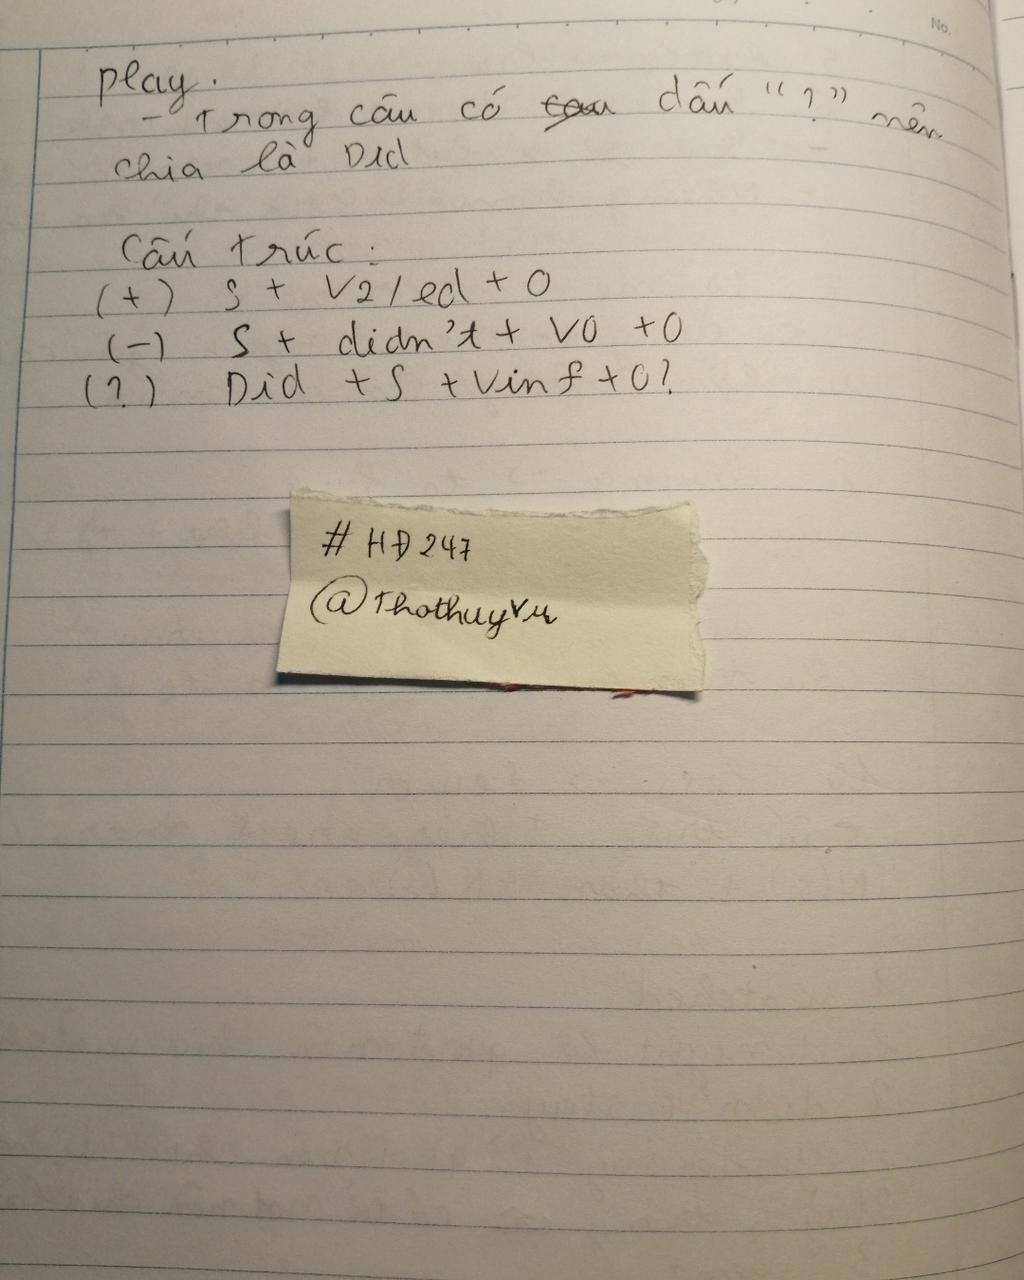 No.
play.
- Trong câu có câu dấu "?" nên
chia là Did
Cấu trúc:
(+) S + V2/ed + O
(-) S + didn't + VO + O
(?) Did + S + Vinf + O?
# HĐ247
@Thothuyvu